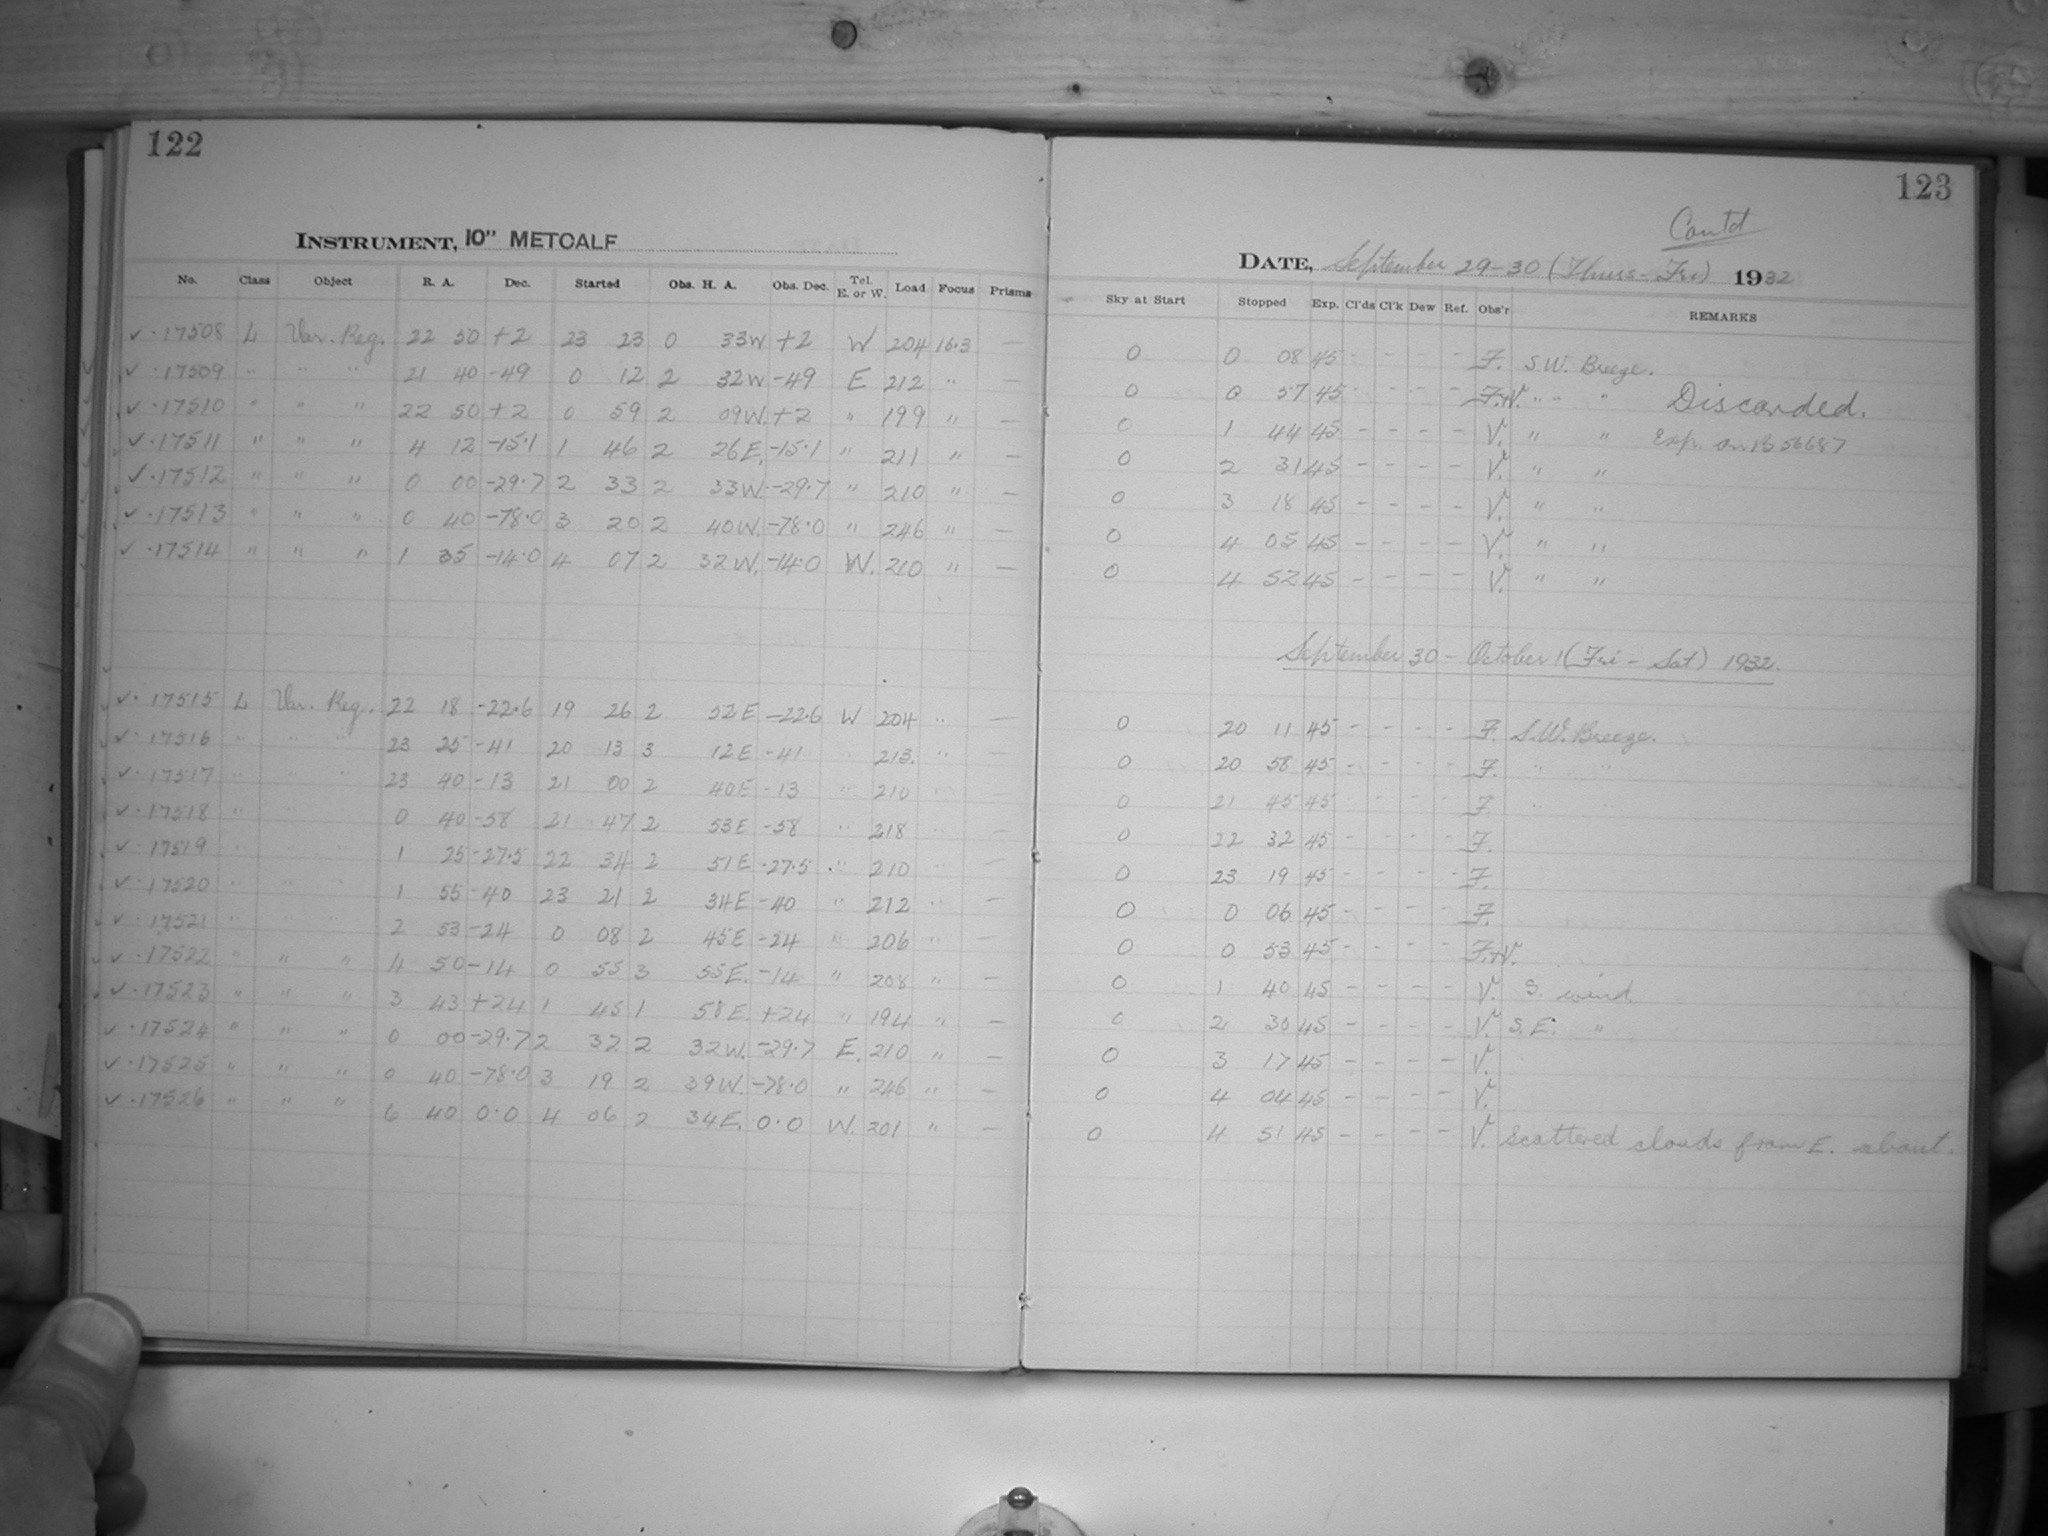 122
INSTRUMENT, 10" METCALF
No. Class Object R. A. Dec. Started Obs. H. A. Obs. Dec. Tel. E. or W. Load Focus Prisms
✓ · 17508 L Var. Reg. 22 50 +2 23 23 0 33W +2 W 204 16.3 —
✓ · 17509 " " " 21 40 -49 0 12 2 32W -49 E 212 " —
✓ · 17510 " " " 22 50 +2 0 59 2 09W. +2 " 199 " —
✓ · 17511 " " " 4 12 -15.1 1 46 2 26E. -15.1 " 211 " —
✓ · 17512 " " " 0 00 -29.7 2 33 2 33W. -29.7 " 210 " —
✓ · 17513 " " " 0 40 -78.0 3 20 2 40W. -78.0 " 246 " —
✓ · 17514 " " " 1 35 -14.0 4 07 2 32W. -14.0 W. 210 " —
✓ · 17515 L Var. Reg. 22 18 -22.6 19 26 2 52E -22.6 W 204 " —
✓ · 17516 " " " 23 25 -41 20 13 3 12E -41 " 213. " —
✓ · 17517 " " " 23 40 -13 21 00 2 40E -13 " 210 " —
✓ · 17518 " " " 0 40 -58 21 47 2 53E -58 " 218 " —
✓ · 17519 " " " 1 25 -27.5 22 34 2 51E -27.5 " 210 " —
✓ · 17520 " " " 1 55 -40 23 21 2 34E -40 " 212 " —
✓ · 17521 " " " 2 53 -24 0 08 2 45E -24 " 206 " —
✓ · 17522 " " " 4 50 -14 0 55 3 55E. -14 " 208 " —
✓ · 17523 " " " 3 43 +24 1 45 1 58E. +24 " 194 " —
✓ · 17524 " " " 0 00 -29.7 2 32 2 32W. -29.7 E. 210 " —
✓ · 17525 " " " 0 40 -78.0 3 19 2 39W. -78.0 " 246 " —
✓ · 17526 " " " 6 40 0.0 4 06 2 34E. 0.0 W. 201 " —
123
Cont'd
DATE, September 29-30 (Thurs-Fri) 1932
Sky at Start Stopped Exp. Cl'ds Cl'k Dew Ref. Obs'r REMARKS
0 0 08 45 - - - - F. S.W. Breeze.
0 0 57 45 - - - - F.+V. " " " Discarded.
0 1 44 45 - - - - V. " " Exp. on B 56687
0 2 31 45 - - - - V. " "
0 3 18 45 - - - - V. " "
0 4 05 45 - - - - V. " "
0 4 52 45 - - - - V. " "
September 30 - October 1 (Fri - Sat) 1932.
0 20 11 45 - - - - F. S.W. Breeze.
0 20 58 45 - - - - F. " "
0 21 45 45 - - - - F. " "
0 22 32 45 - - - - F.
0 23 19 45 - - - - F.
0 0 06 45 - - - - F.
0 0 53 45 - - - - F.+V.
0 1 40 45 - - - - V. S. wind.
0 2 30 45 - - - - V. S.E. "
0 3 17 45 - - - - V.
0 4 04 45 - - - - V.
0 4 51 45 - - - - V. Scattered clouds from E. about.